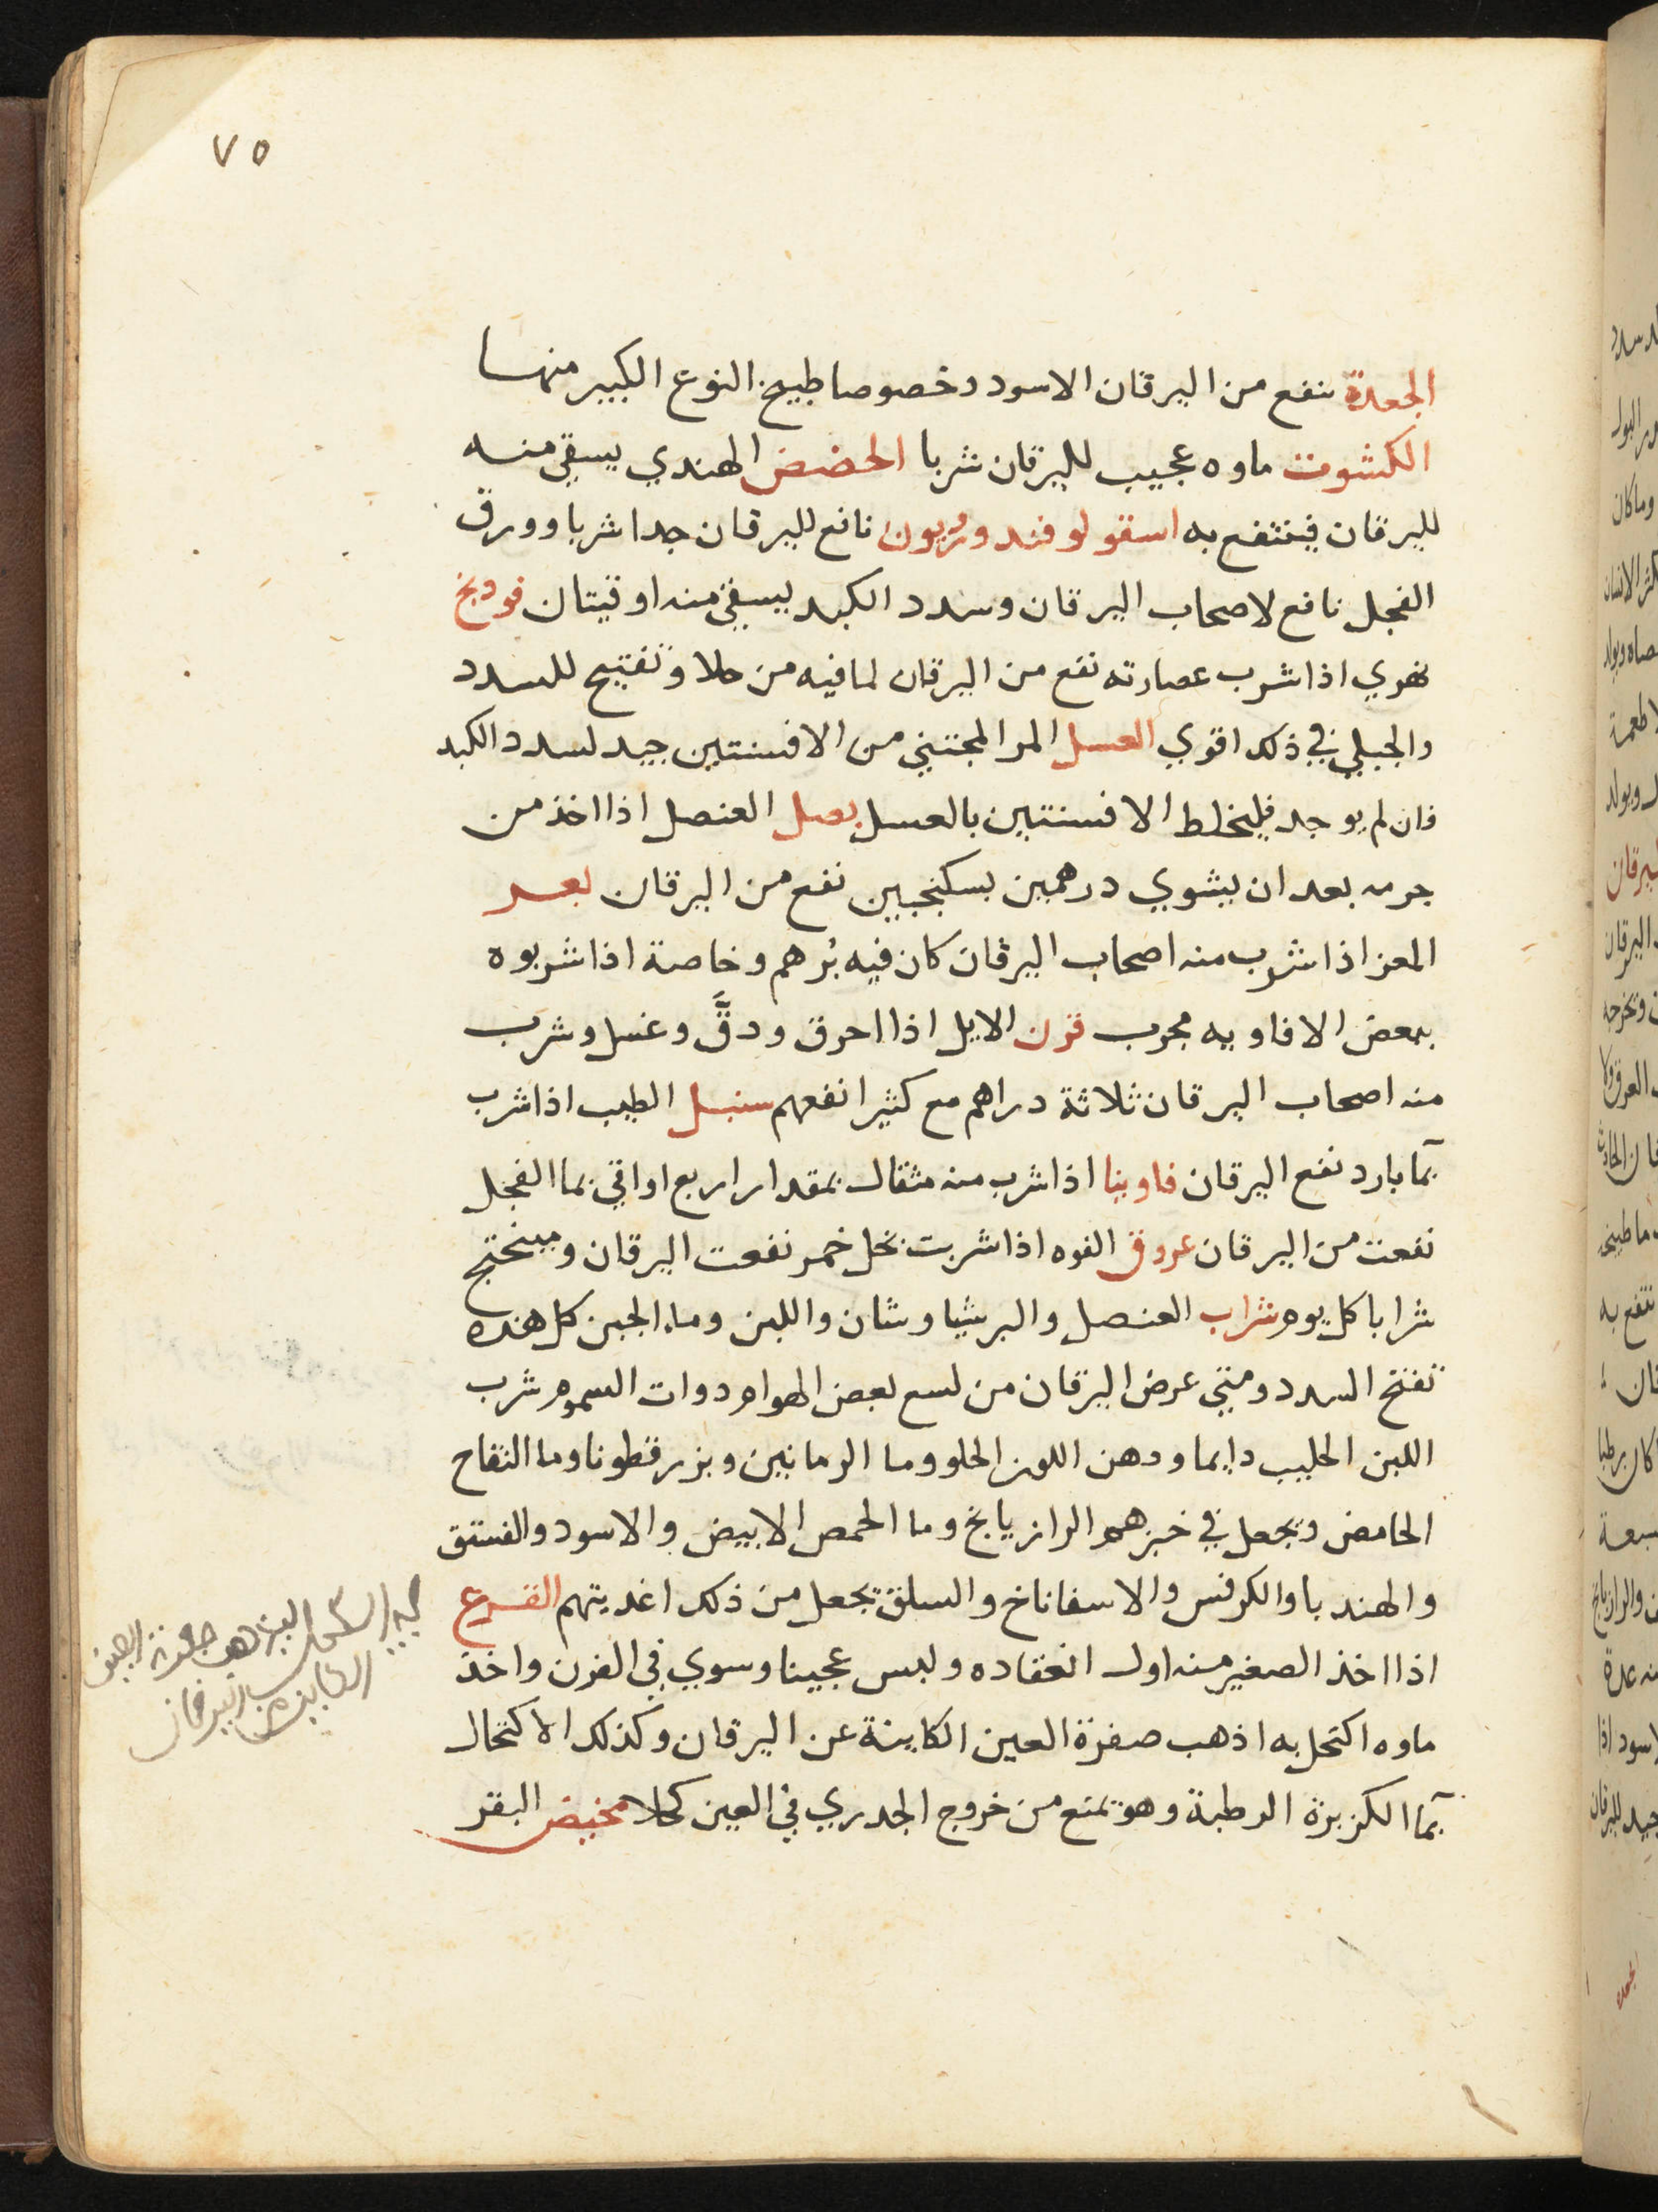 ٧٥
الجعدة ينفع من اليرقان الاسود وخصوصا طبيخ النوع الكبير منها
الكشوت ماوه عجيب لليرقان شربا الحضض الهندي يسقي منه
لليرقان فينتفع به اسقولوفندوريون نافع لليرقان جدا شربا وورق
الفجل نافع لاصحاب اليرقان وسدد الكبد يسقي منه اوقيتان فودنج
نهري اذا شرب عصارته نفع من اليرقان لما فيه من جلا وتفتيح للسدد
والجبلي في ذلك اقوي العسل المر المجتني من الافسنتين جيد لسدد الكبد
فان لم يوجد فليخلط الافسنتين بالعسل بصل العنصل اذا اخذ من
جرمه بعد ان يشوي درهمين بسكنجبين نفع من اليرقان بعر
المعز اذا شرب منه اصحاب اليرقان كان فيه بُرهم وخاصة اذا شربوه
ببعض الافاويه مجرب قرن الايل اذا احرق ودقَّ وغسل وشرب
منه اصحاب اليرقان ثلاثة دراهم مع كثيرا نفعهم سنبل الطيب اذا شرب
بمآ بارد نفع اليرقان فاوينا اذا شرب منه مثقال بمقدار اربع اواقي بما الفجل
نفعت من اليرقان عروق الفوه اذا شربت بخل خمر نفعت اليرقان وميبختج
شرابا كل يوم شراب العنصل والبرشياوشان واللبن وماء الجبن كل هذه
تفتح السدد ومتي عرض اليرقان من لسع بعض الهوام دوات السموم شرب
اللبن الحليب دايما ودهن اللوز الحلو وما الرمانين وبزر قطونا وما التفاح
الحامض ويجعل في خبزهم الرازيانج وما الحمص الابيض والاسود والفستق
والهندبا والكرفس والاسفاناخ والسلق يجعل من ذلك اغديتهم القرع
اذا اخذ الصغير منه اول انعقاده ولبس عجينا وسوي في الفرن واخذ
ماوه اكتحل به اذهب صفرة العين الكاينة عن اليرقان وكذلك الاكتحال
بمآ الكزبزة الرطبة وهو يمنع من خروج الجدري في العين كحلا مخيض البقر
العين
اليرقان